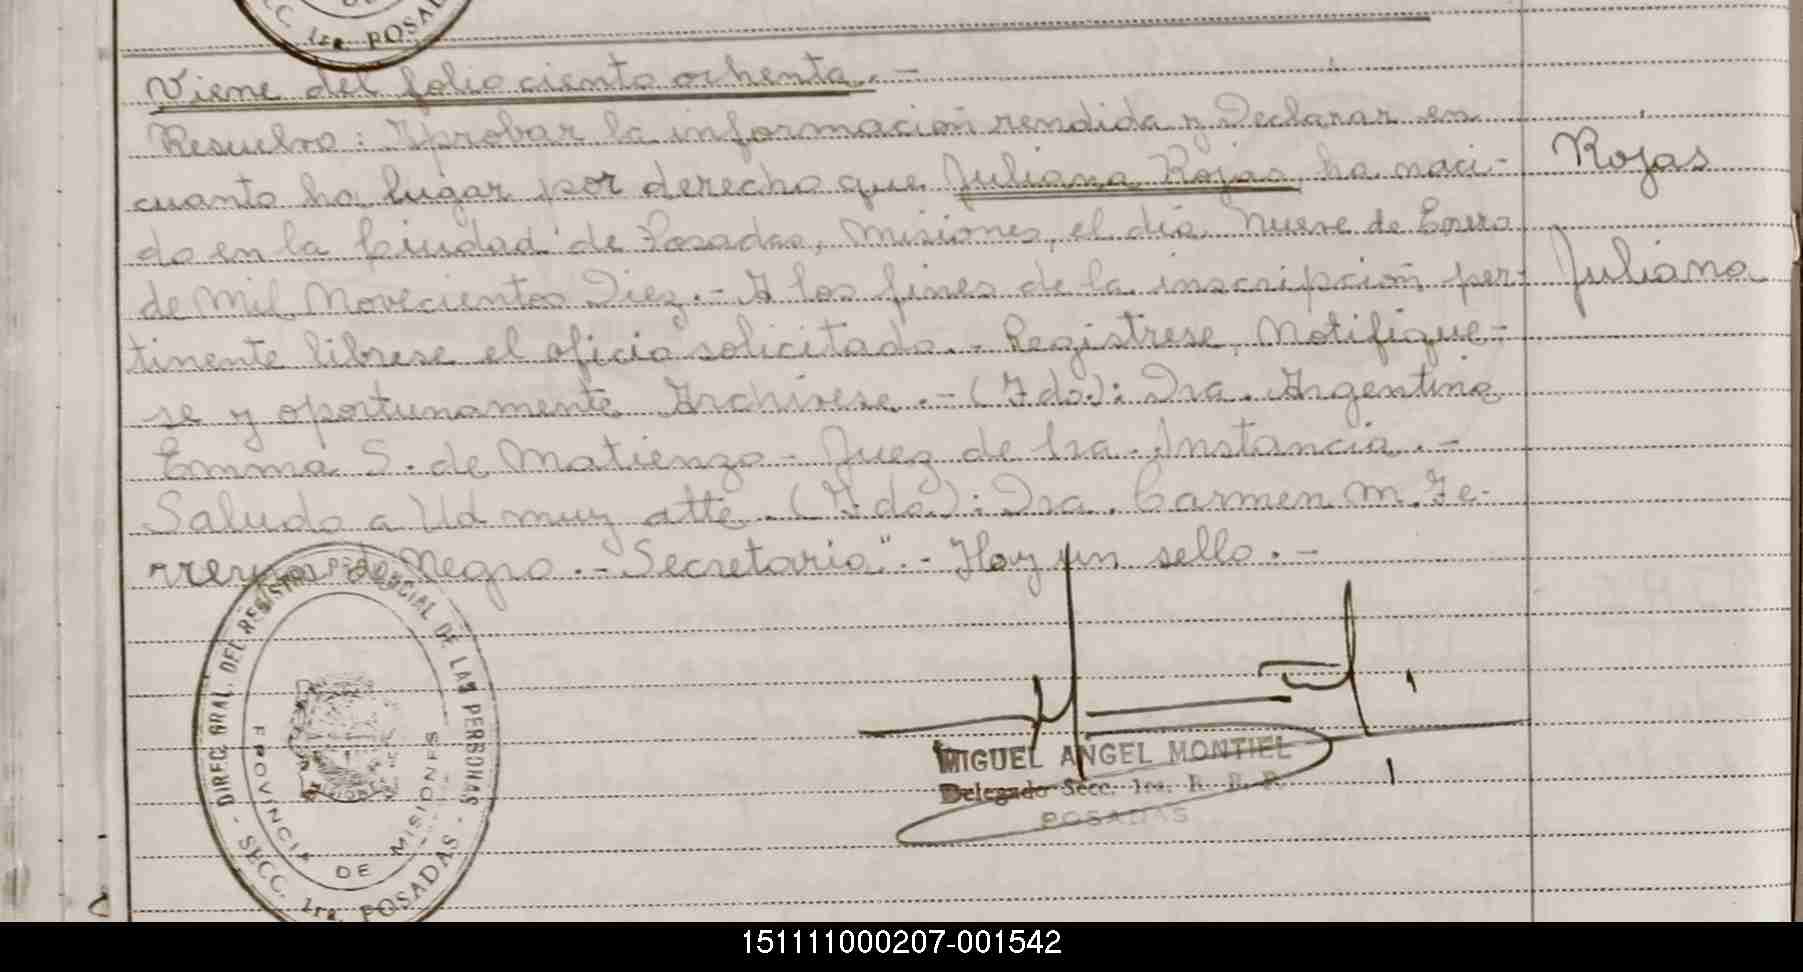 1ra. POSADAS
Viene del folio ciento ochenta.-
Resuelvo: Aprobar la información rendida y Declarar en
cuanto ha lugar por derecho que Juliana Rojas ha naci-
do en la Ciudad de Posadas, Misiones, el día Nueve de Enero
de Mil Novecientos Diez.- A los fines de la inscripción per-
tinente líbrese el oficio solicitado.- Regístrese, Notifíque-
se y oportunamente Archívese.- (Fdo.): Dra. Argentina
Emma S. de Matienzo - Juez de 1ra. Instancia.-
Saludo a Ud muy atte. (Fdo.): Dra. Carmen M. Fe-
rreyra de Negro.- Secretaria".- Hay un sello.-
Rojas
Juliana
DIREC. GRAL. DEL REGISTRO PROVINCIAL DE LAS PERSONAS
PROVINCIA DE MISIONES
SECC. 1ra. POSADAS
MIGUEL ANGEL MONTIEL
Delegado Secc. 1ra. R. P. P.
POSADAS
151111000207-001542